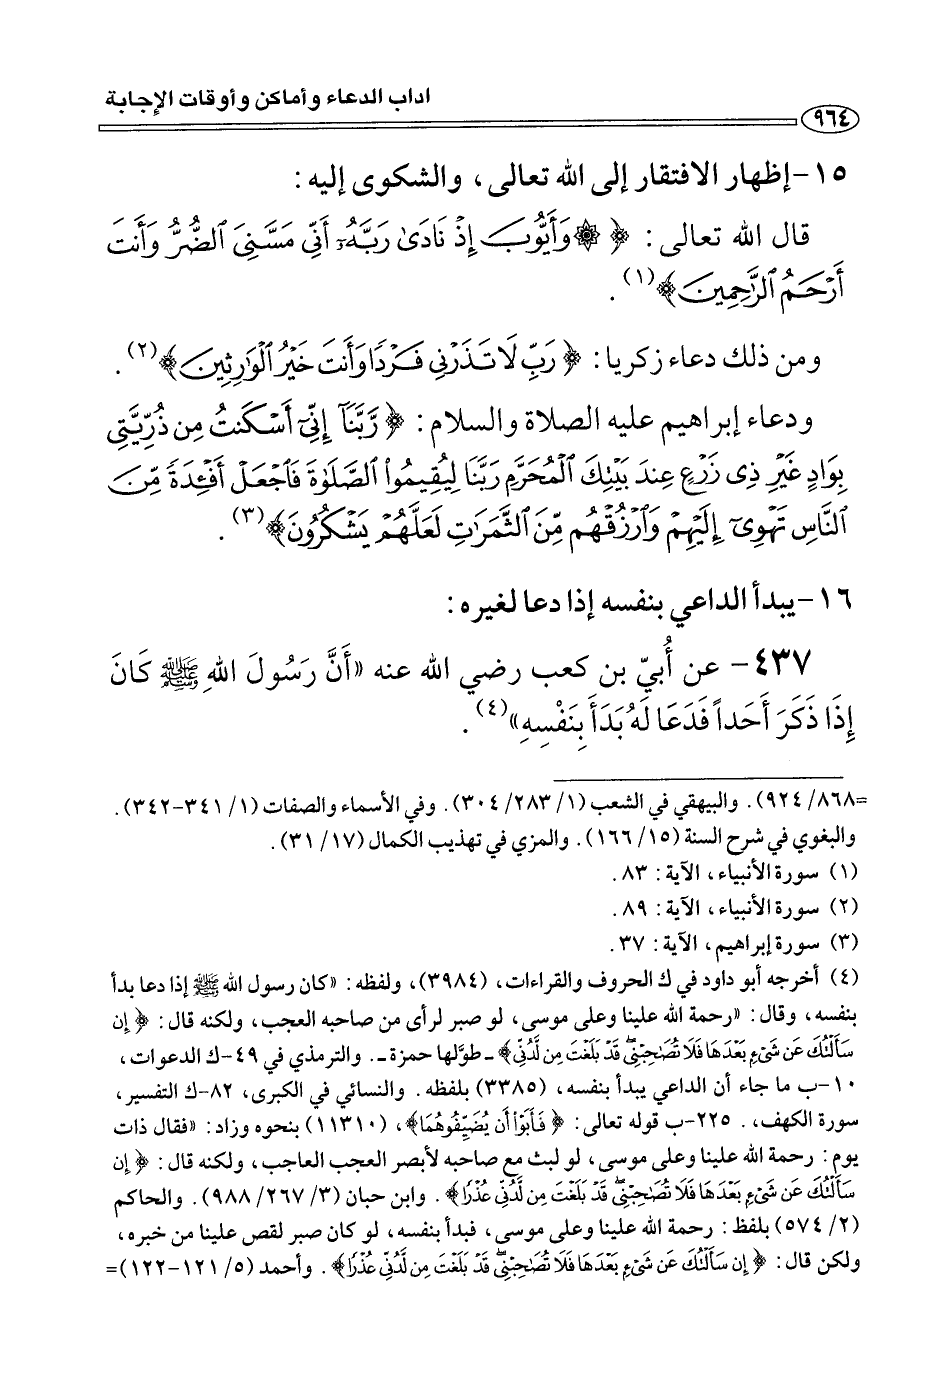 اداب الدعاء وأماكن وأوقات الإجابة
٩٦٤
١٥-إظهار الافتقار إلى الله تعالى، والشكوى إليه:
قال الله تعالى: ﴿ ۞ وَأَيُّوبَ إِذْ نَادَىٰ رَبَّهُۥٓ أَنِّي مَسَّنِيَ ٱلضُّرُّ وَأَنتَ
أَرْحَمُ ٱلرَّٰحِمِينَ﴾(١).
ومن ذلك دعاء زكريا: ﴿ رَبِّ لَا تَذَرْنِي فَرْدًا وَأَنتَ خَيْرُ ٱلْوَٰرِثِينَ﴾(٢).
ودعاء إبراهيم عليه الصلاة والسلام: ﴿ رَّبَّنَآ إِنِّيٓ أَسْكَنتُ مِن ذُرِّيَّتِي
بِوَادٍ غَيْرِ ذِي زَرْعٍ عِندَ بَيْتِكَ ٱلْمُحَرَّمِ رَبَّنَا لِيُقِيمُوا۟ ٱلصَّلَوٰةَ فَٱجْعَلْ أَفْـِٔدَةً مِّنَ
ٱلنَّاسِ تَهْوِيٓ إِلَيْهِمْ وَٱرْزُقْهُم مِّنَ ٱلثَّمَرَٰتِ لَعَلَّهُمْ يَشْكُرُونَ﴾(٣).
١٦-يبدأ الداعي بنفسه إذا دعا لغيره:
٤٣٧- عن أُبيّ بن كعب رضي الله عنه «أَنَّ رَسُولَ اللهِ ﷺ كَانَ
إِذَا ذَكَرَ أَحَداً فَدَعَا لَهُ بَدَأَ بِنَفْسِهِ»(٤).
=٨٦٨/ ٩٢٤). والبيهقي في الشعب (١/ ٢٨٣/ ٣٠٤). وفي الأسماء والصفات (١/ ٣٤١-٣٤٢).
والبغوي في شرح السنة (١٥/ ١٦٦). والمزي في تهذيب الكمال (١٧/ ٣١).
(١) سورة الأنبياء، الآية: ٨٣.
(٢) سورة الأنبياء، الآية: ٨٩.
(٣) سورة إبراهيم، الآية: ٣٧.
(٤) أخرجه أبو داود في ك الحروف والقراءات، (٣٩٨٤)، ولفظه: «كان رسول الله ﷺ إذا دعا بدأ
بنفسه، وقال: «رحمة الله علينا وعلى موسى، لو صبر لرأى من صاحبه العجب، ولكنه قال: ﴿ إِن
سَأَلْتُكَ عَن شَيْءٍۭ بَعْدَهَا فَلَا تُصَٰحِبْنِي قَدْ بَلَغْتَ مِن لَّدُنِّي﴾ ـ طوَّلها حمزة ـ. والترمذي في ٤٩-ك الدعوات،
١٠-ب ما جاء أن الداعي يبدأ بنفسه، (٣٣٨٥) بلفظه. والنسائي في الكبرى، ٨٢-ك التفسير،
سورة الكهف، . ٢٢٥-ب قوله تعالى: ﴿ فَأَبَوْا۟ أَن يُضَيِّفُوهُمَا﴾، (١١٣١٠) بنحوه وزاد: «فقال ذات
يوم: رحمة الله علينا وعلى موسى، لو لبث مع صاحبه لأبصر العجب العاجب، ولكنه قال: ﴿ إِن
سَأَلْتُكَ عَن شَيْءٍۭ بَعْدَهَا فَلَا تُصَٰحِبْنِي قَدْ بَلَغْتَ مِن لَّدُنِّي عُذْرًا﴾. وابن حبان (٣/ ٢٦٧/ ٩٨٨). والحاكم
(٢/ ٥٧٤) بلفظ: رحمة الله علينا وعلى موسى، فبدأ بنفسه، لو كان صبر لقص علينا من خبره،
ولكن قال: ﴿ إِن سَأَلْتُكَ عَن شَيْءٍۭ بَعْدَهَا فَلَا تُصَٰحِبْنِي قَدْ بَلَغْتَ مِن لَّدُنِّي عُذْرًا﴾. وأحمد (٥/ ١٢١-١٢٢)=